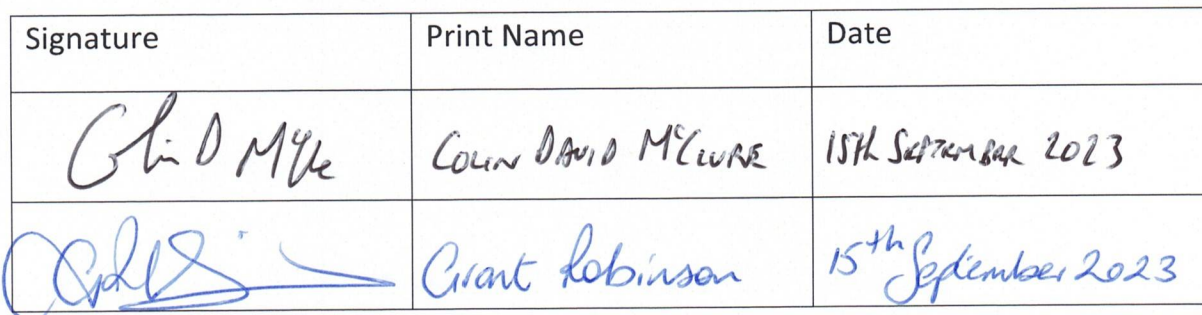 Signature Print Name Date
Colin D McClure COLIN DAVID McCLURE 15th SEPTEMBER 2023
Grant Robinson 15th September 2023